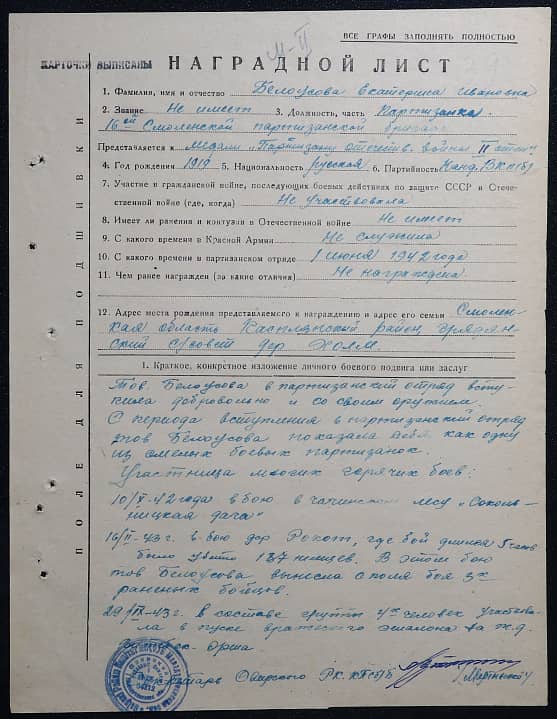 ВСЕ ГРАФЫ ЗАПОЛНЯТЬ ПОЛНОСТЬЮ
М-II
КАРТОЧКИ ВЫПИСАНЫ
НАГРАДНОЙ ЛИСТ
1. Фамилия, имя и отчество Белоусова Екатерина Ивановна
2. Звание Не имеет 3. Должность, часть Партизанка
16ой Смоленской партизанской бригады
Представляется к медали „Партизану отечеств. войны II степ"
4. Год рождения 1919 5. Национальность русская 6. Партийность Канд. ВКП(б)
7. Участие в гражданской войне, последующих боевых действиях по защите СССР и Отече-
ственной войне (где, когда) Не участвовала
8. Имеет ли ранения и контузии в Отечественной войне Не имеет
9. С какого времени в Красной Армии Не служила
10. С какого времени в партизанском отряде 1 июня 1942 года
11. Чем ранее награжден (за какие отличия) Не награждена
12. Адрес места рождения представляемого к награждению и адрес его семьи Смолен-
ская область Касплянский район
ский с/совет дер Холм.
1. Краткое, конкретное изложение личного боевого подвига или заслуг
Тов. Белоусова в партизанский отряд всту-
пила добровольно и со своим оружием.
С периода вступления в партизанский отряд
тов Белоусова показала себя как одну
из смелых боевых партизанок.
Участница многих горячих боев:
10/X-42 года в бою в лесу „Соколь-
ницкая дача"
16/II-43 г. в бою дер Рокот, где бой длился 5 часов
было убито 187 немцев. В этом бою
тов Белоусова вынесла с поля боя 3х
раненых бойцов.
29/IX-43 г. в составе группы 4х человек участвова-
ла в пуске вражеского эшалона на ж.д.
Орша.
Секретарь РК КП(б)Б
ПОЛЕ ДЛЯ ПОДШИВКИ